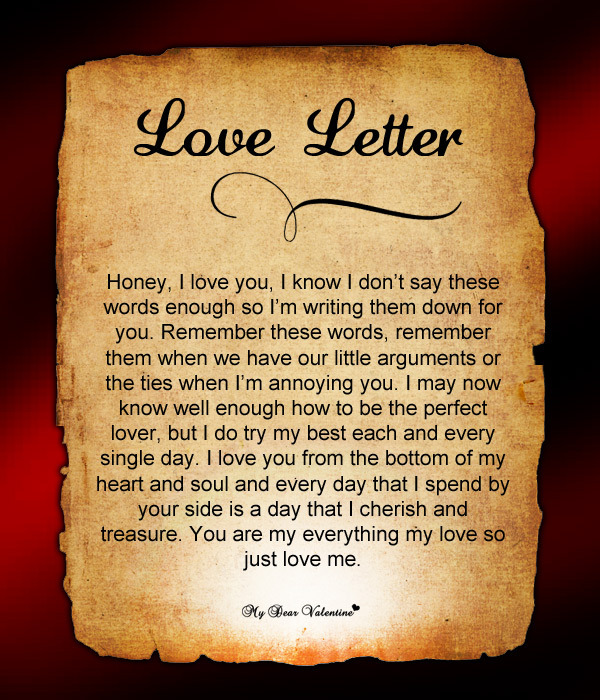 Love Letter
Honey, I love you, I know I don't say these
words enough so I'm writing them down for
you. Remember these words, remember
them when we have our little arguments or
the ties when I'm annoying you. I may now
know well enough how to be the perfect
lover, but I do try my best each and every
single day. I love you from the bottom of my
heart and soul and every day that I spend by
your side is a day that I cherish and
treasure. You are my everything my love so
just love me.
My Dear Valentine